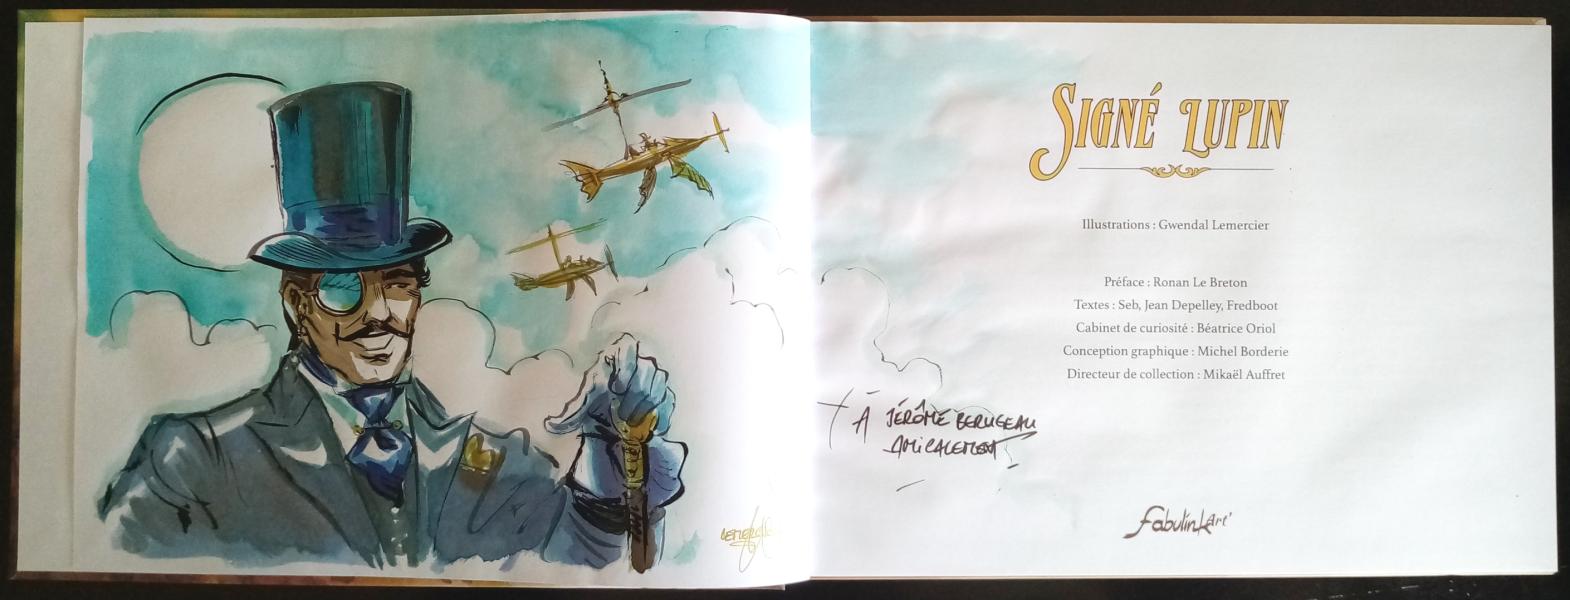 SIGNÉ LUPIN
Illustrations : Gwendal Lemercier
Préface : Ronan Le Breton
Textes : Seb, Jean Depelley, Fredboot
Cabinet de curiosité : Béatrice Oriol
Conception graphique : Michel Borderie
Directeur de collection : Mikaël Auffret
À JÉRÔME
AMICALEMENT
fabulink Art'